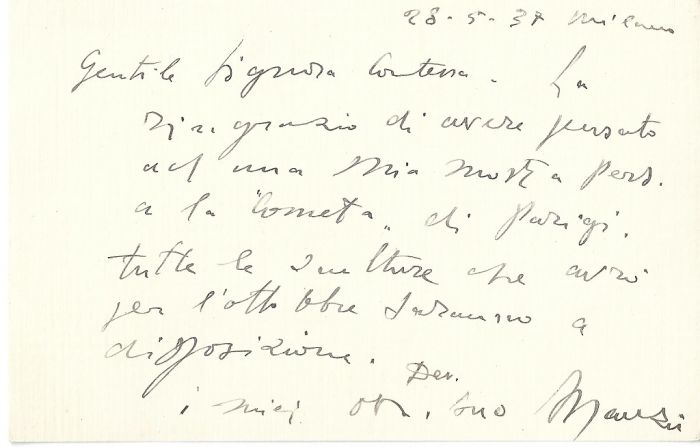 28-5-37 Milano
Gentile Signora Contessa. La
ringrazio di avere pensato
ad una mia mostra pers.
a la "Cometa" di Parigi.
tutte le sculture che avrò
per l'ottobre saranno a
disposizione.
Dev.
i miei oss. suo Manzù